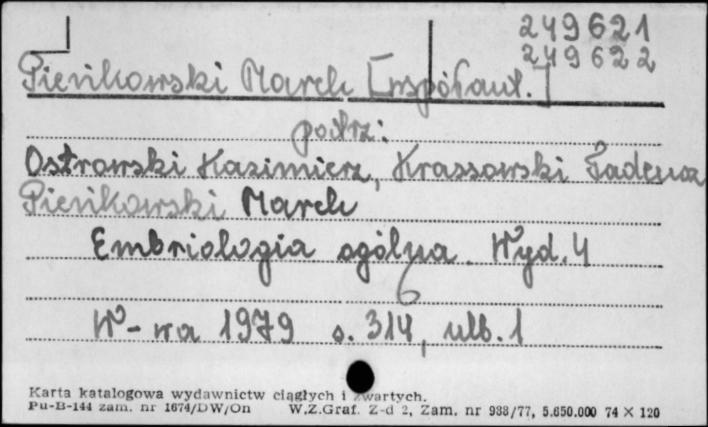 249621
249622
Pieńkowski Marek [współaut.]
patrz:
Ostrowski Kazimierz, Krassowski Tadeusz
Pieńkowski Marek
Embriologia ogólna. Wyd. 4
6
W-wa 1979 s. 314, nlb. 1
Karta katalogowa wydawnictw ciągłych i zwartych.
Pu-B-144 zam. nr 1674/DW/On W.Z.Graf. Z-d 2, Zam. nr 938/77, 5.650.000 74 X 120